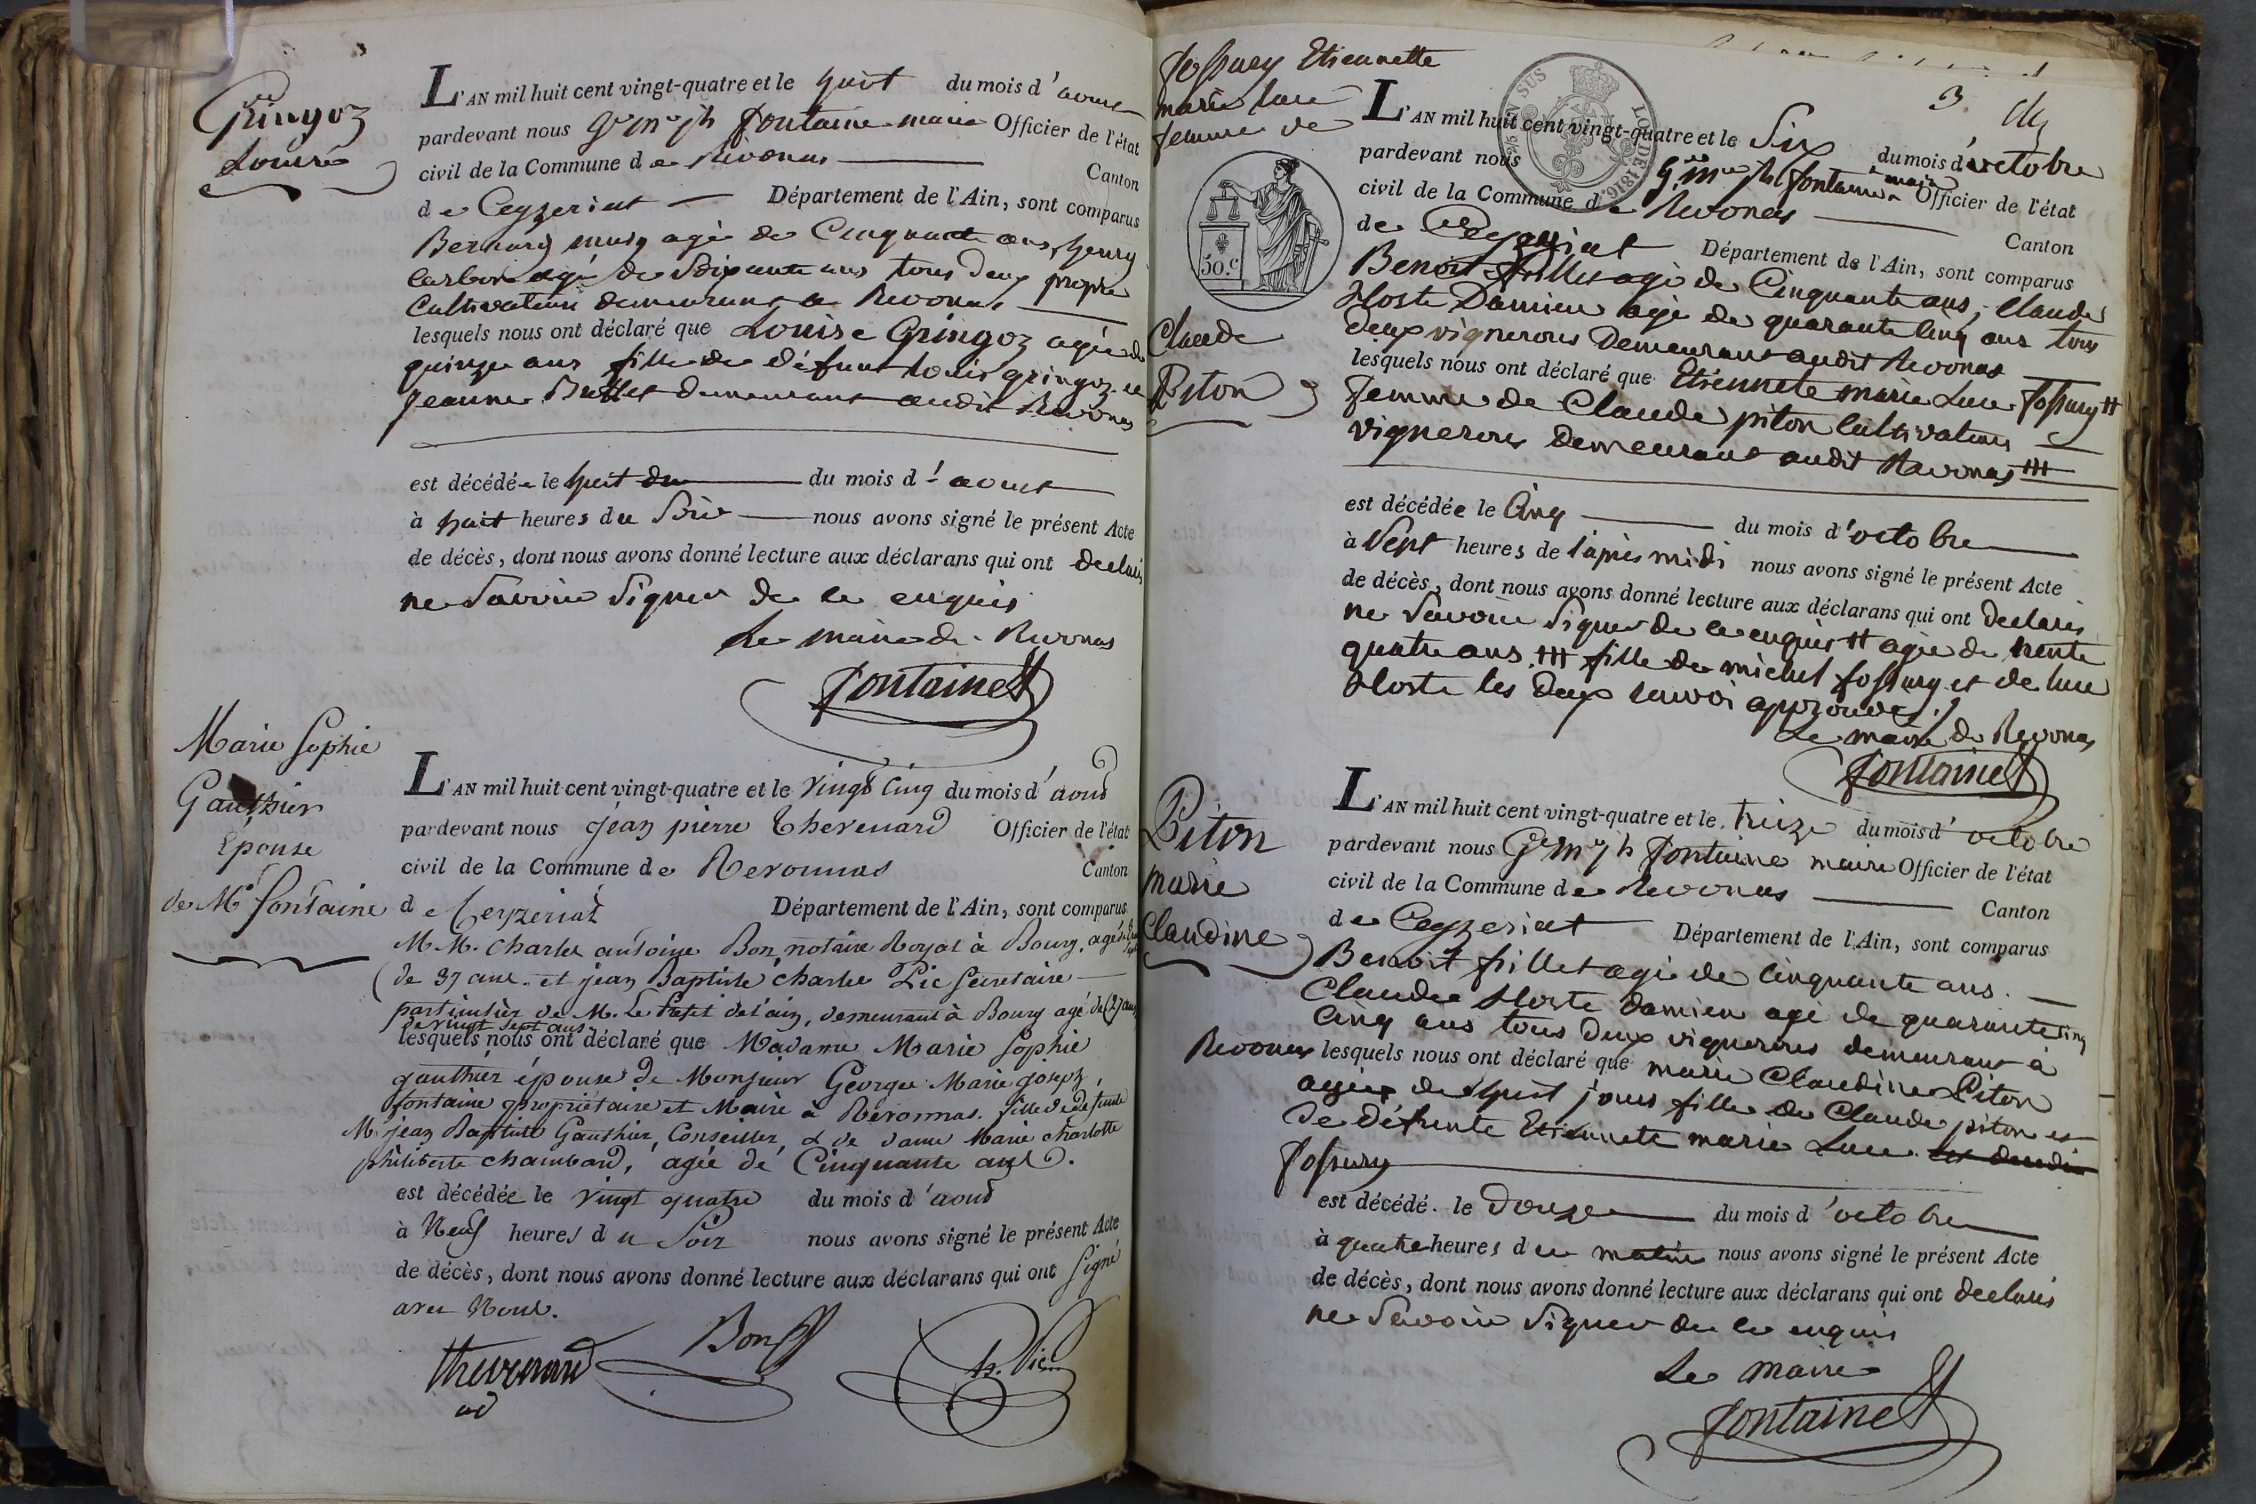 Gringoz
Louise
L'AN mil huit cent vingt-quatre et le huit du mois d'aoust
pardevant nous Ge Me Jh fontaine maire Officier de l'état
civil de la Commune de Revonas
Canton
de Ceyzeriat Département de l'Ain, sont comparus
Bernard agé de Cinquante ans, henry
Carbon agé de Soixante ans tous deux propre
Cultivateurs demeurant a Revonas
lesquels nous ont déclaré que Louise Gringoz agée de
quinze ans fille de défunt Louis gringoz et
Jeanne Buffet demeurant audit Revonas
est décédée le huit du mois d'aoust
à huit heures du Soir nous avons signé le présent Acte
de décès, dont nous avons donné lecture aux déclarans qui ont declaré
ne Savoir Signer de ce enquis
Le maire de Revonas
fontaine
Marie Sophie
Gauthier
Epouse
de Mr fontaine
L'AN mil huit cent vingt-quatre et le vingt cinq du mois d'aoud
pardevant nous jean pierre Thevenard Officier de l'état
civil de la Commune de Revonnas
Canton
de Ceyzeriat Département de l'Ain, sont comparus
M.M. Charles antoine Bon, notaire Royal à Bourg, agé
de 37 ans et jean Baptiste Charles Pic Secretaire
particulier de M. Le Prefet de l'ain, demeurant à Bourg agé de (27 ans
de vingt sept ans
lesquels nous ont déclaré que Madame Marie Sophie
gauthier épouse de Monsieur George Marie joseph
fontaine propriétaire et Maire à Revonnas. fille de defunt
M. jean Baptiste Gauthier, Conseiller, & de dame Marie charlotte
philiberte chambard, agée de Cinquante ans.
est décédée le vingt quatre du mois d'aoud
à Neuf heures du Soir nous avons signé le présent Acte
de décès, dont nous avons donné lecture aux déclarans qui ont Signé
avec Nous.
Thevenard Bon Pic
ad
fossury Etiennette
marie luce
femme de
50.c
Claude
Piton
3
LOI DE 1816
L'AN mil huit cent vingt-quatre et le Six du mois d'octobre
pardevant nous Ge Me Jh fontaine maire Officier de l'état
civil de la Commune de Revonas
Canton
de Ceyzeriat Département de l'Ain, sont comparus
Benoit fillet agé de Cinquante ans, Claude
Hoste Damien agé de quarante cinq ans tous
deux vignerons Demeurant audit Revonas
lesquels nous ont déclaré que Etiennete marie Luce fossury #
femme de Claude piton Cultivateur
vigneron demeurant audit Revonas ##
est décédée le Cinq du mois d'octobre
à Sept heures de l'après midi nous avons signé le présent Acte
de décès, dont nous avons donné lecture aux déclarans qui ont declaré
ne Savoir Signer de ce enquis # agée de trente
quatre ans ## fille de michel fossury et de luce
Hoste les deux renvoi approuvés
Le maire de Revonas
fontaine
Piton
marie
Claudine
L'AN mil huit cent vingt-quatre et le treize du mois d'octobre
pardevant nous Ge Me Jh fontaine maire Officier de l'état
civil de la Commune de Revonas
Canton
de Ceyzeriat Département de l'Ain, sont comparus
Benoit fillet agé de Cinquante ans.
Claude Hoste Damien agé de quarante cinq
cinq ans tous deux vignerons demeurant à
Revonas lesquels nous ont déclaré que marie Claudine Piton
agée de huit jours fille de Claude piton et
de défunte Etiennete marie Luce
fossury
est décédé. le Douze du mois d'octobre
à quatre heures du matin nous avons signé le présent Acte
de décès, dont nous avons donné lecture aux déclarans qui ont declaré
ne Savoir Signer de ce enquis
Le maire
fontaine